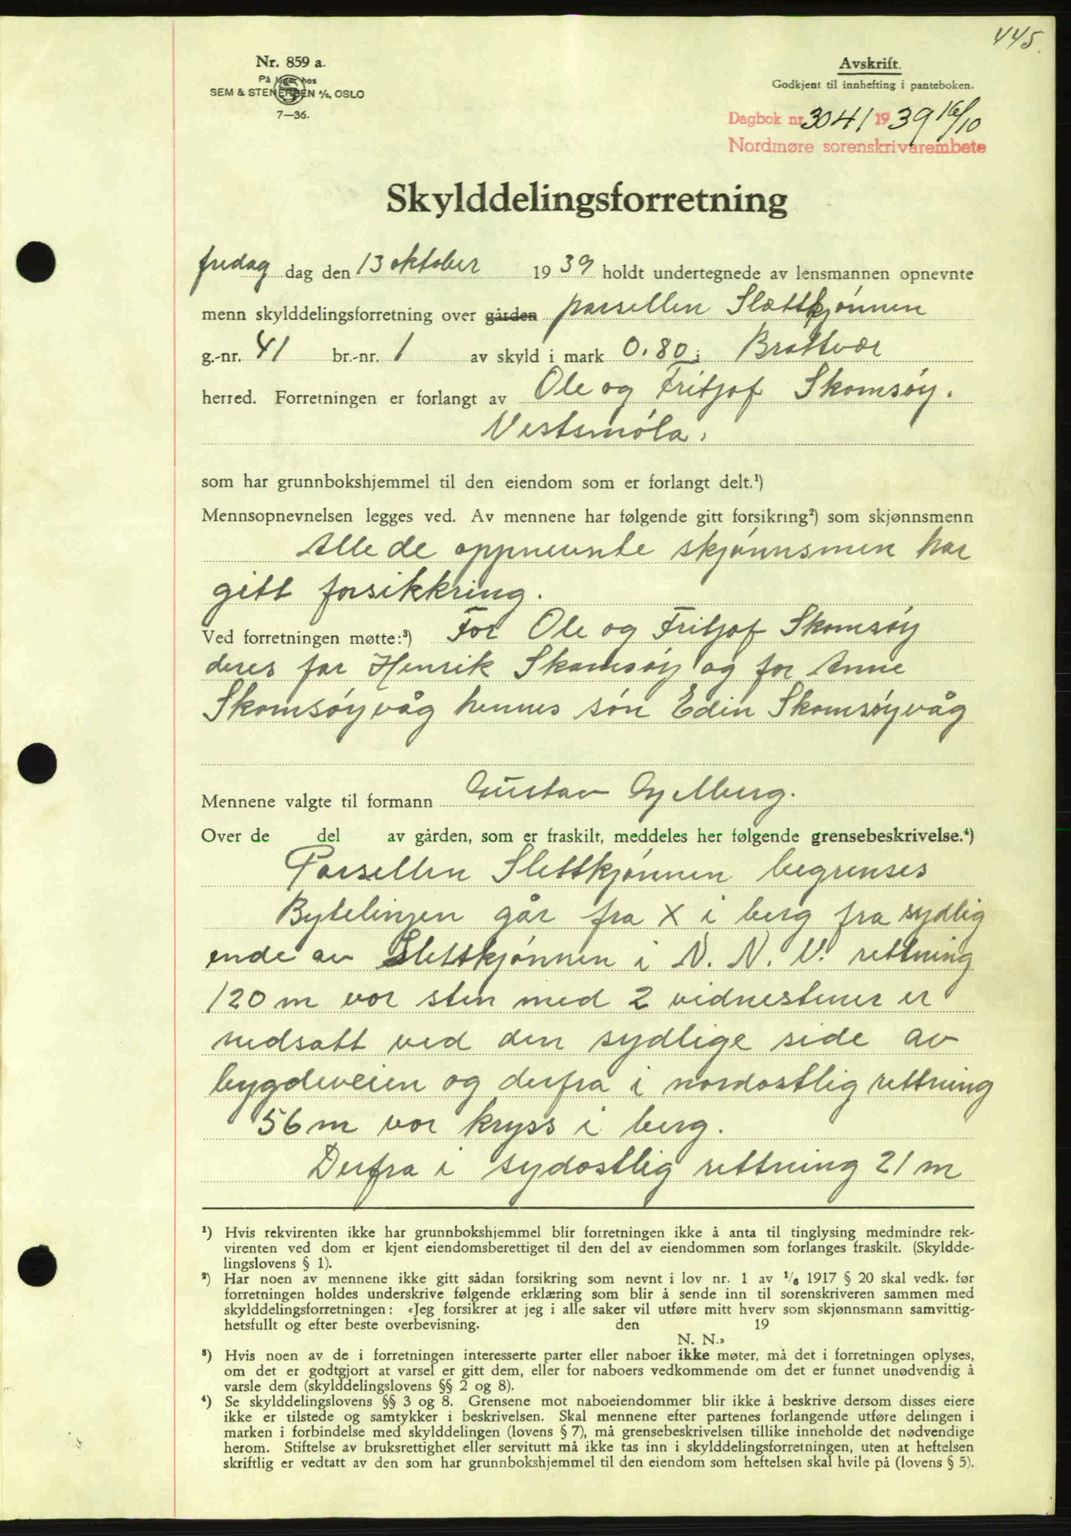 445.
Nr. 859 a.
På lager hos
SEM & STENERSEN A/S, OSLO
7—36.
Avskrift.
Godkjent til innhefting i panteboken.
Dagbok nr. 3041 1939 16/10
Nordmøre sorenskrivarembete
Skylddelingsforretning
fredag dag den 13 oktober 1939 holdt undertegnede av lensmannen opnevnte
menn skylddelingsforretning over gården parsellen Slættkjönnen
g.-nr. 41 br.-nr. 1 av skyld i mark 0.80 i Brattvær
herred. Forretningen er forlangt av Ole og Fritjof Skomsöy.
Vestsmöla.
som har grunnbokshjemmel til den eiendom som er forlangt delt.¹)
Mennsopnevnelsen legges ved. Av mennene har følgende gitt forsikring²) som skjønnsmenn
Alle de oppnevnte skjönnsmen har
gitt forsikkring.
Ved forretningen møtte:³) For Ole og Fritjof Skomsöy
deres far Henrik Skomsöy og for Anne
Skomsöyvåg hennes sön Edin Skomsöyvåg
Mennene valgte til formann Gustav Gjelberg.
Over de del av gården, som er fraskilt, meddeles her følgende grensebeskrivelse.⁴)
Parsellen Slettkjönnen begrenses
Bytelinjen går fra X i berg fra sydlig
ende av Slettkjönnen i N. N. V. rettning
120 m vor sten med 2 vidnestener er
nedsatt ved den sydlige side av
bygdeveien og derfra i nordostlig rettning
56 m vor kryss i berg.
Derfra i sydostlig rettning 21 m
¹) Hvis rekvirenten ikke har grunnbokshjemmel blir forretningen ikke å anta til tinglysing medmindre rek-
virenten ved dom er kjent eiendomsberettiget til den del av eiendommen som forlanges fraskilt. (Skyldde-
lingslovens § 1).
²) Har noen av mennene ikke gitt sådan forsikring som nevnt i lov nr. 1 av 1/6 1917 § 20 skal vedk. før
forretningen holdes underskrive følgende erklæring som blir å sende inn til sorenskriveren sammen med
skylddelingsforretningen: «Jeg forsikrer at jeg i alle saker vil utføre mitt hverv som skjønnsmann samvittig-
hetsfullt og efter beste overbevisning. den 19
N. N.»
³) Hvis noen av de i forretningen interesserte parter eller naboer ikke møter, må det i forretningen oplyses,
om det er godtgjort at varsel er gitt dem, eller for naboers vedkommende om det er funnet unødvendig å
varsle dem (skylddelingslovens §§ 2 og 8).
⁴) Se skylddelingslovens §§ 3 og 8. Grensene mot naboeiendommer blir ikke å beskrive dersom disses eiere
ikke er tilstede og samtykker i beskrivelsen. Skal mennene efter partenes forlangende utføre delingen i
marken i forbindelse med skylddelingen (lovens § 7), må grensebeskrivelsen tillike inneholde det nødvendige
herom. Stiftelse av bruksrettighet eller servitutt må ikke tas inn i skylddelingsforretningen, uten at heftelsen
skriftlig er vedtatt av den som har grunnbokshjemmel til den eiendom som heftelsen skal hvile på (lovens § 5).